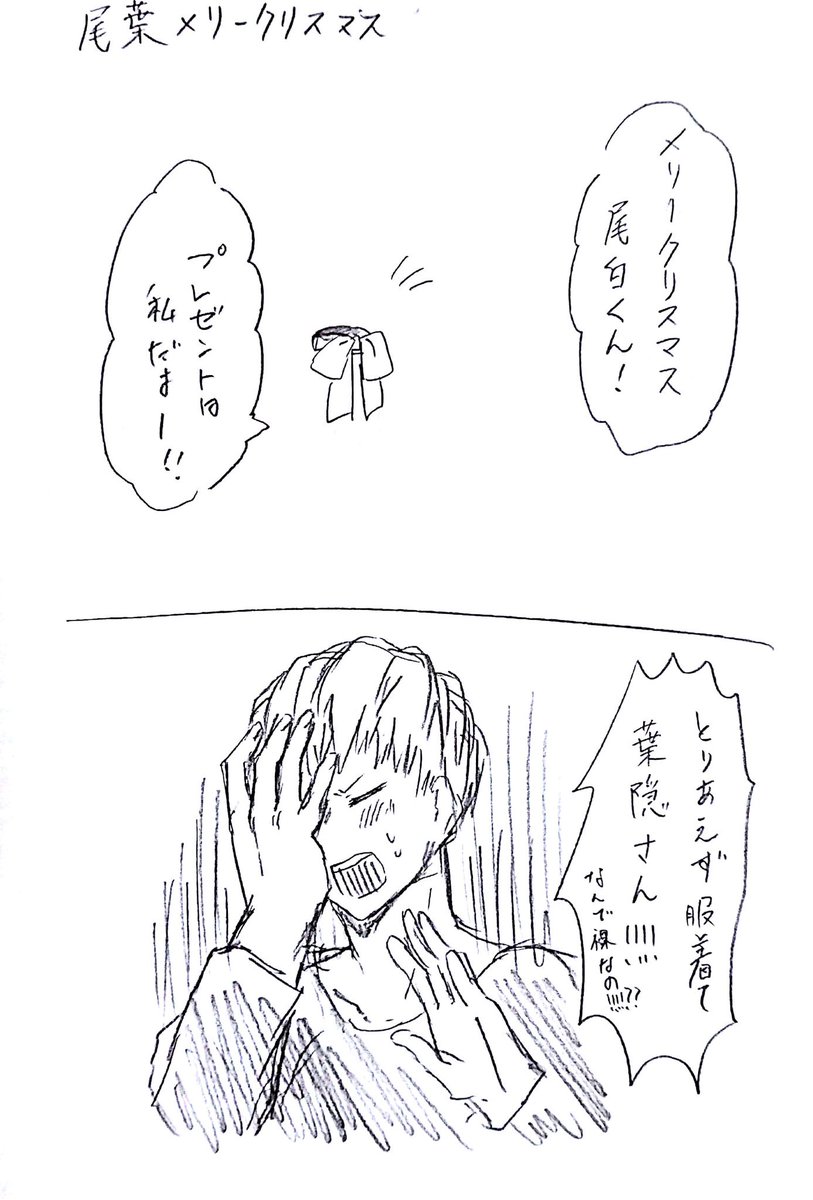 尾葉メリークリスマス
メリークリスマス
尾白くん!
プレゼントは
私だよー!!
とりあえず服着て
葉隠さん!!!!
なんで裸なの!!!!??